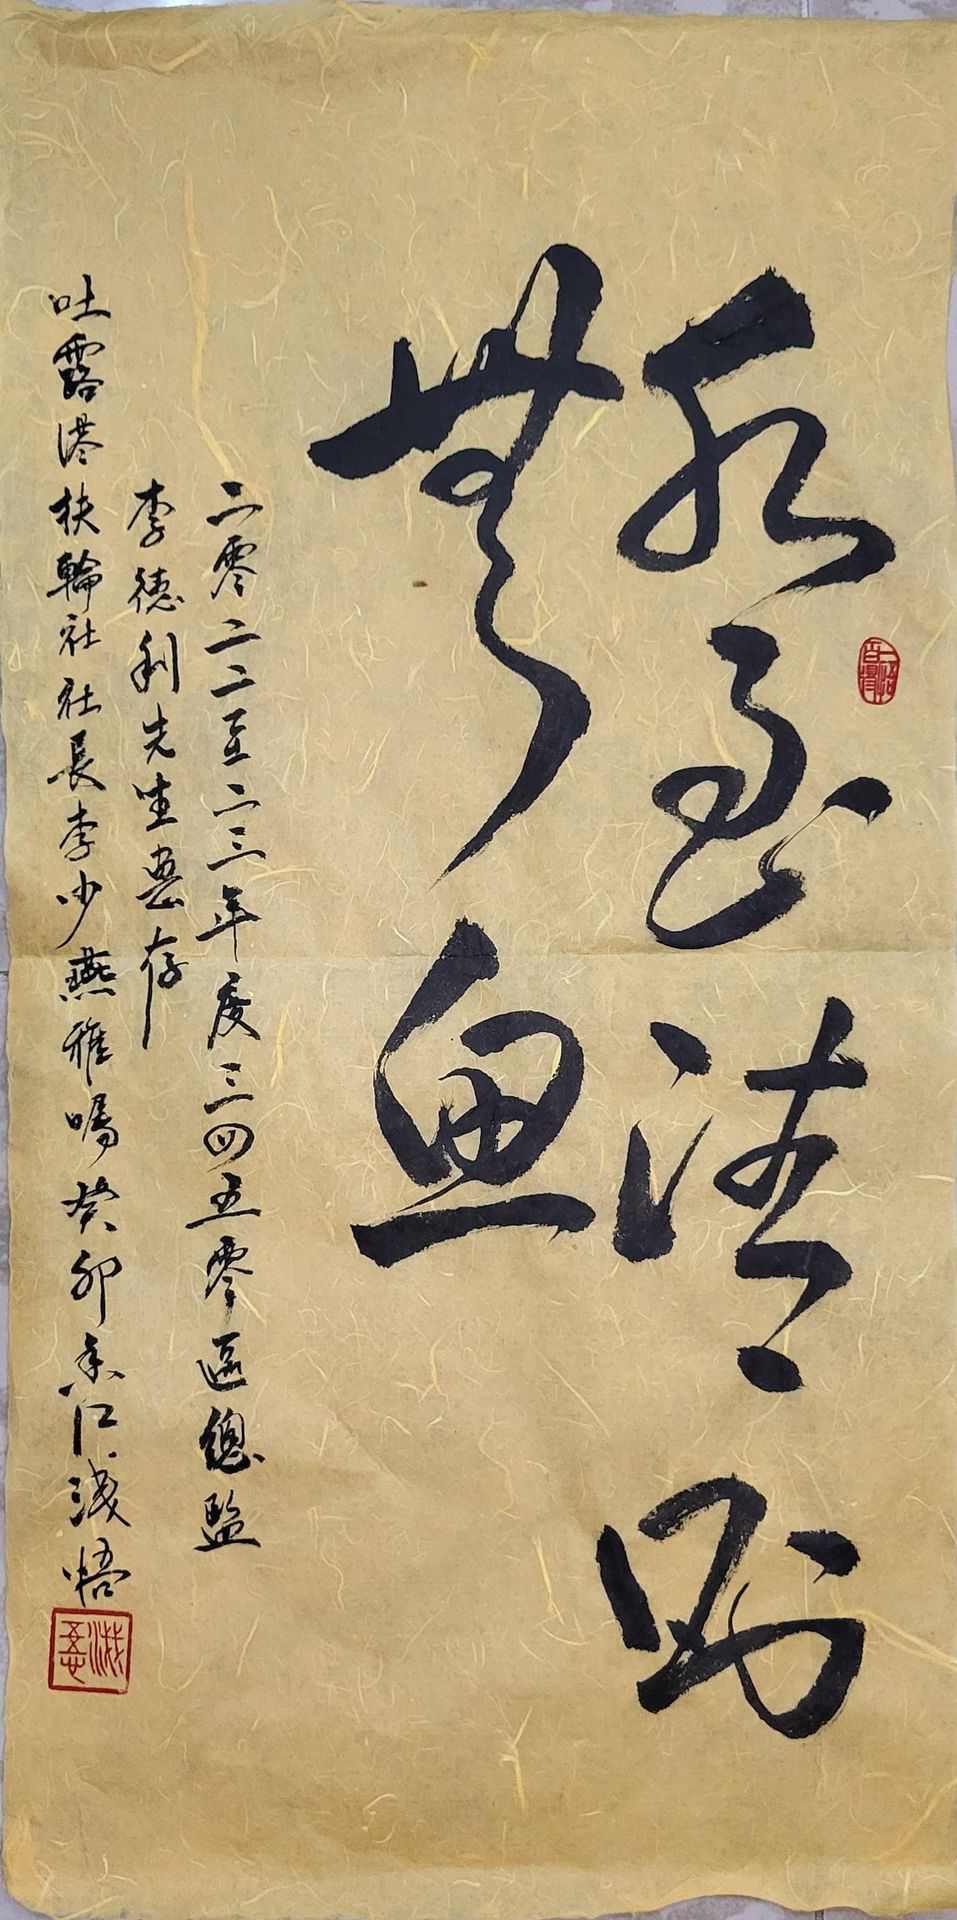 水至清則
無魚
二零二二至二三年度三四五零區總監
李德利先生惠存
吐露港扶輪社社長李少燕雅囑癸卯香江淺悟